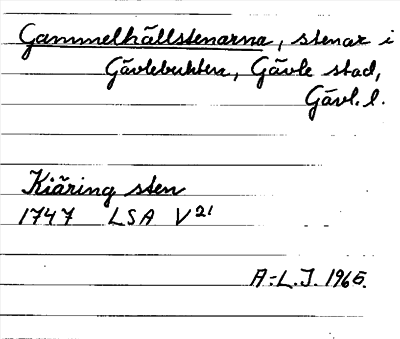 Gammelhällstenarna, stenar i
Gävlebukten, Gävle stad,
Gävl. l.
Kiäring sten
1747 LSA V 21
A-L. J. 1965.